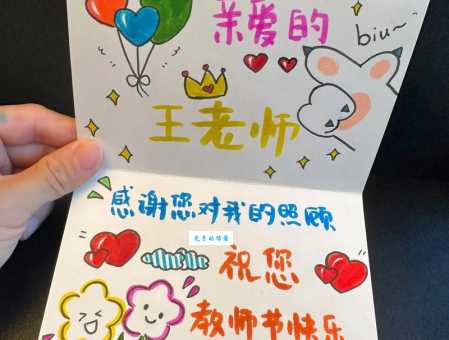 亲爱的
biu~
王老师
感谢您对我的照顾
祝您
教师节快乐